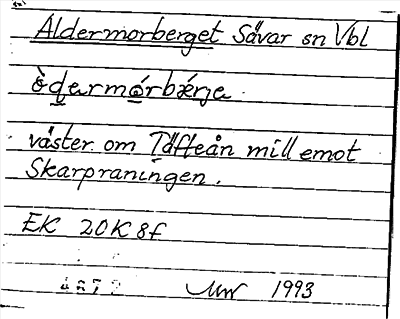 Åldermorberget Sävar sn Vbl
òdermórbǽrje.
väster om Täfteån mittemot
Skarpraningen.
EK 20K8f
1993